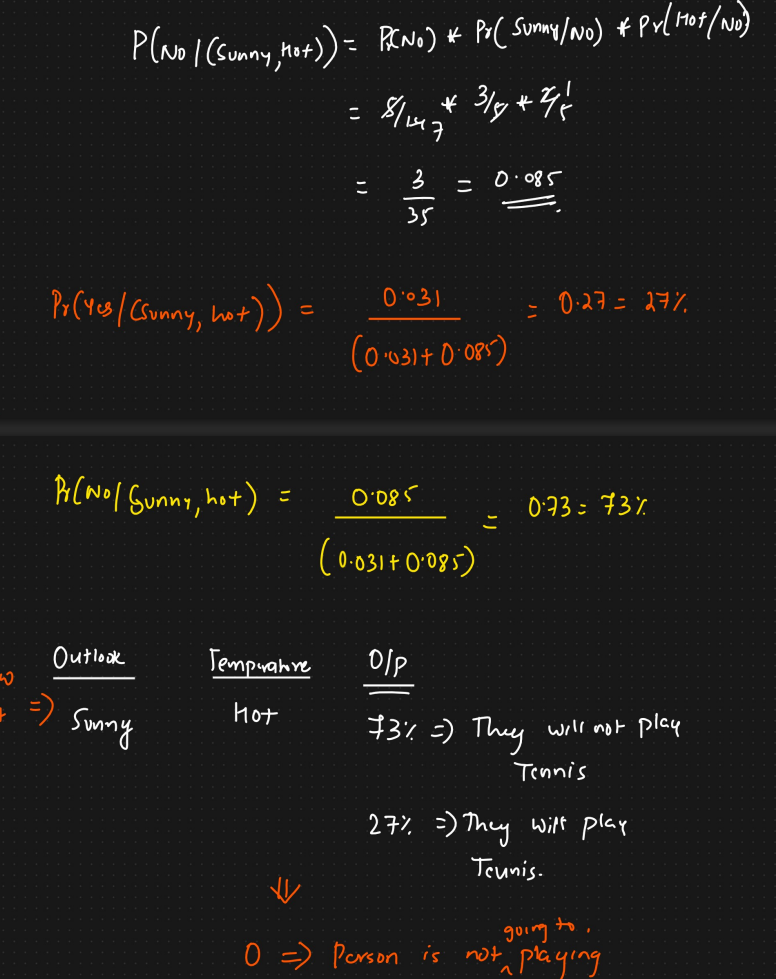 P(No | (Sunny, Hot)) = P(No) * Pr(Sunny/No) * Pr(Hot/No)
= 5/14 7 * 3/5 * 2/5 1
= 3/35 = 0.085
Pr(Yes/(Sunny, hot)) = 0.031/(0.031+0.085) = 0.27 = 27%
Pr(No/Sunny, hot) = 0.085/(0.031+0.085) = 0.73 = 73%
Outlook Temperature O/P
=> Sunny Hot 73% => They will not play
Tennis
27% => They will play
Tennis.
going to.
0 => Person is not ^ playing